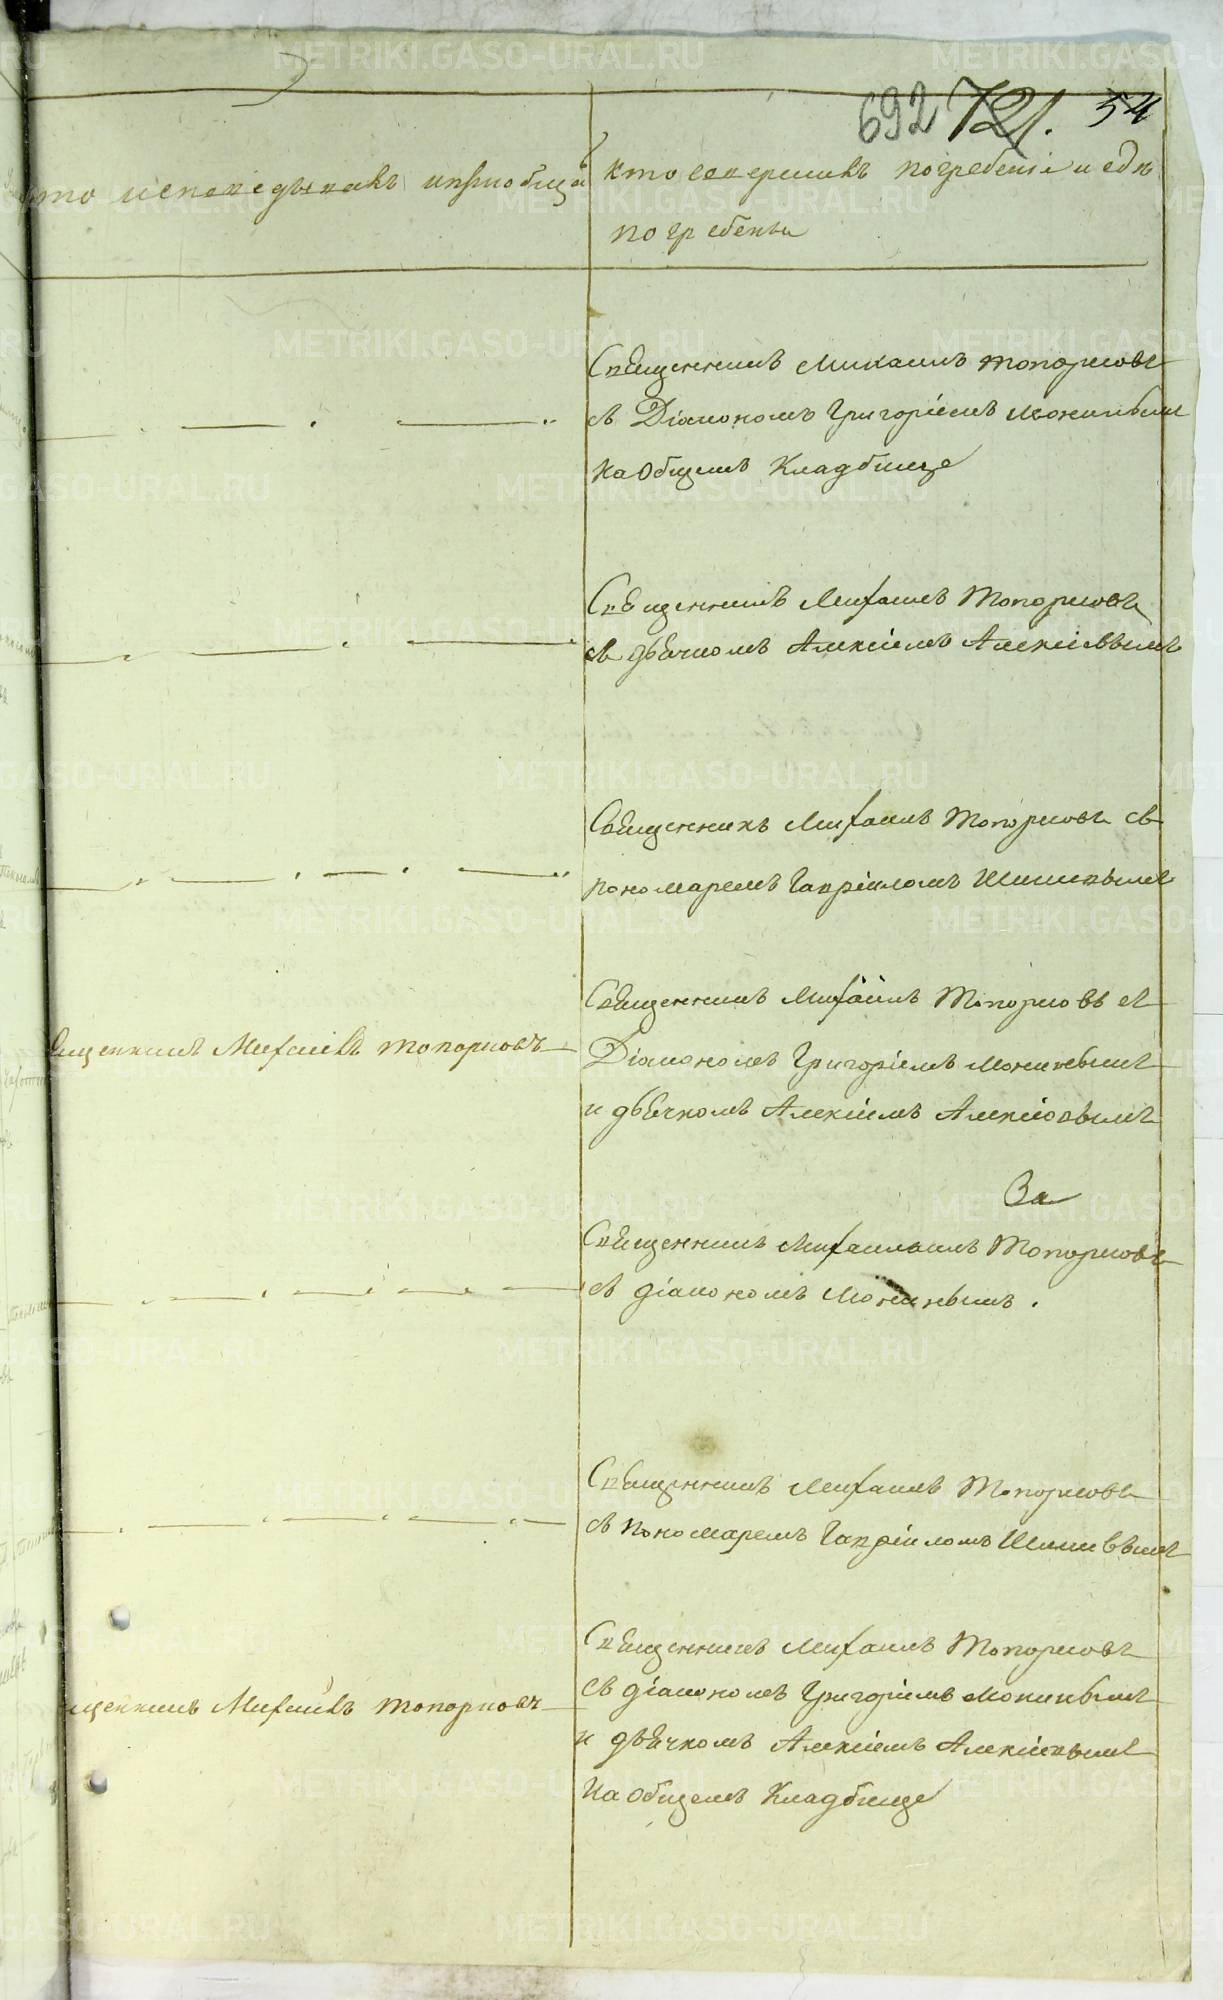 692 721. 54
Кто исповедывалъ ипріобща
лъ
кто совершилъ погребеніе и гдѣ
погребены
Священникъ Михаилъ Топорковъ
съ Діакономъ Григоріемъ Мокинымъ
на Общемъ Кладбище
Священникъ Михаилъ Топорковъ
съ дьячкомъ Алексіемъ Алексіевымъ
Священникъ Михаилъ Топорковъ съ
пономаремъ Гавріиломъ Шишевымъ
щенникъ Михаилъ Топорковъ
Священникъ Михаилъ Топорковъ съ
Діакономъ Григоріемъ Мокинымъ
и дьячкомъ Алексіемъ Алексіовымъ
За
Священникъ Топорковъ
съ діакономъ Мокинымъ.
Священникъ Михаилъ Топорковъ
съ пономаремъ Гавріиломъ Шишевымъ
щенникъ Михаилъ Топорковъ
Священникъ Михаилъ Топорковъ
съ діакономъ Григоріемъ Мокинымъ
и дьячкомъ Алексіемъ Алексіевымъ
на Общемъ Кладбище
METRIKI.GASO-URAL.RU